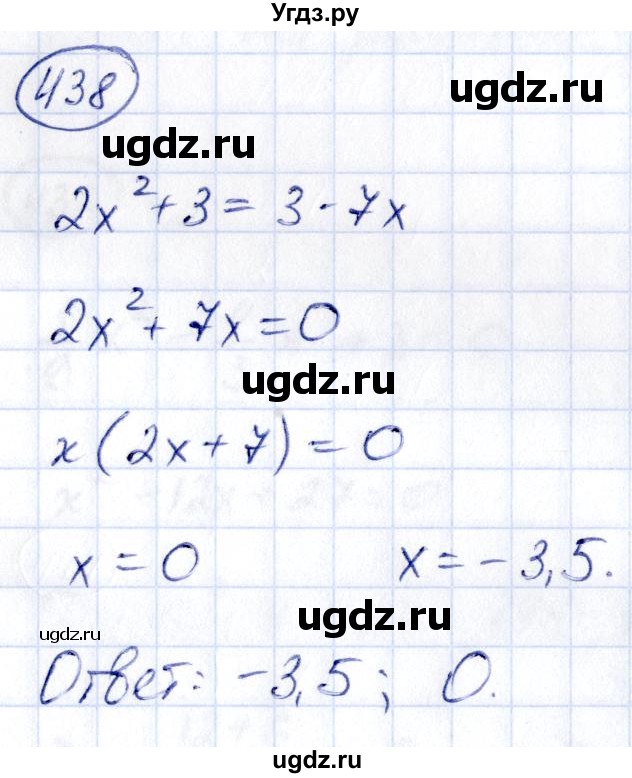 Угдз.ру
438
ugdz.ru
ugdz.ru
2x² + 3 = 3 - 7x
2x² + 7x = 0
ugdz.ru
x(2x + 7) = 0
x = 0 x = - 3,5.
ugdz.ru
ugdz.ru
Ответ: -3,5; 0.
ugdz.ru